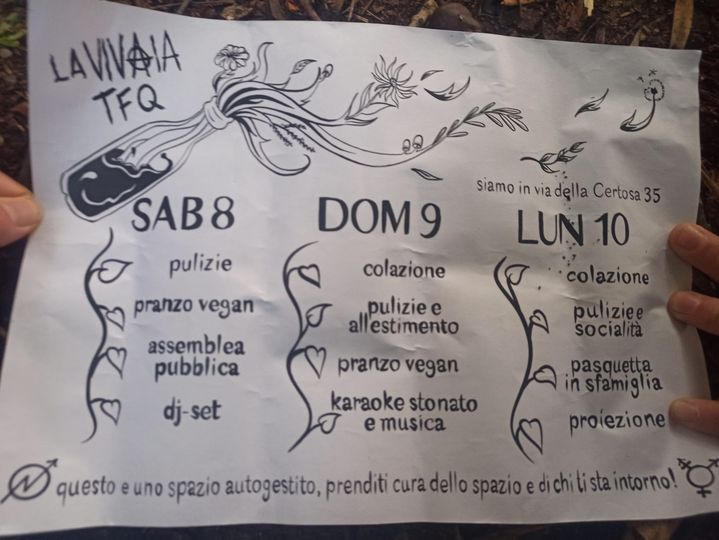 LA VIVAIA
TFQ
siamo in via della Certosa 35
SAB 8
pulizie
pranzo vegan
assemblea
pubblica
dj-set
DOM 9
colazione
pulizie e
all'estimento
pranzo vegan
karaoke stonato
e musica
LUN 10
colazione
pulizie e
socialità
pasquetta
in sfamiglia
proiezione
questo e uno spazio autogestito, prenditi cura dello spazio e di chi ti sta intorno!